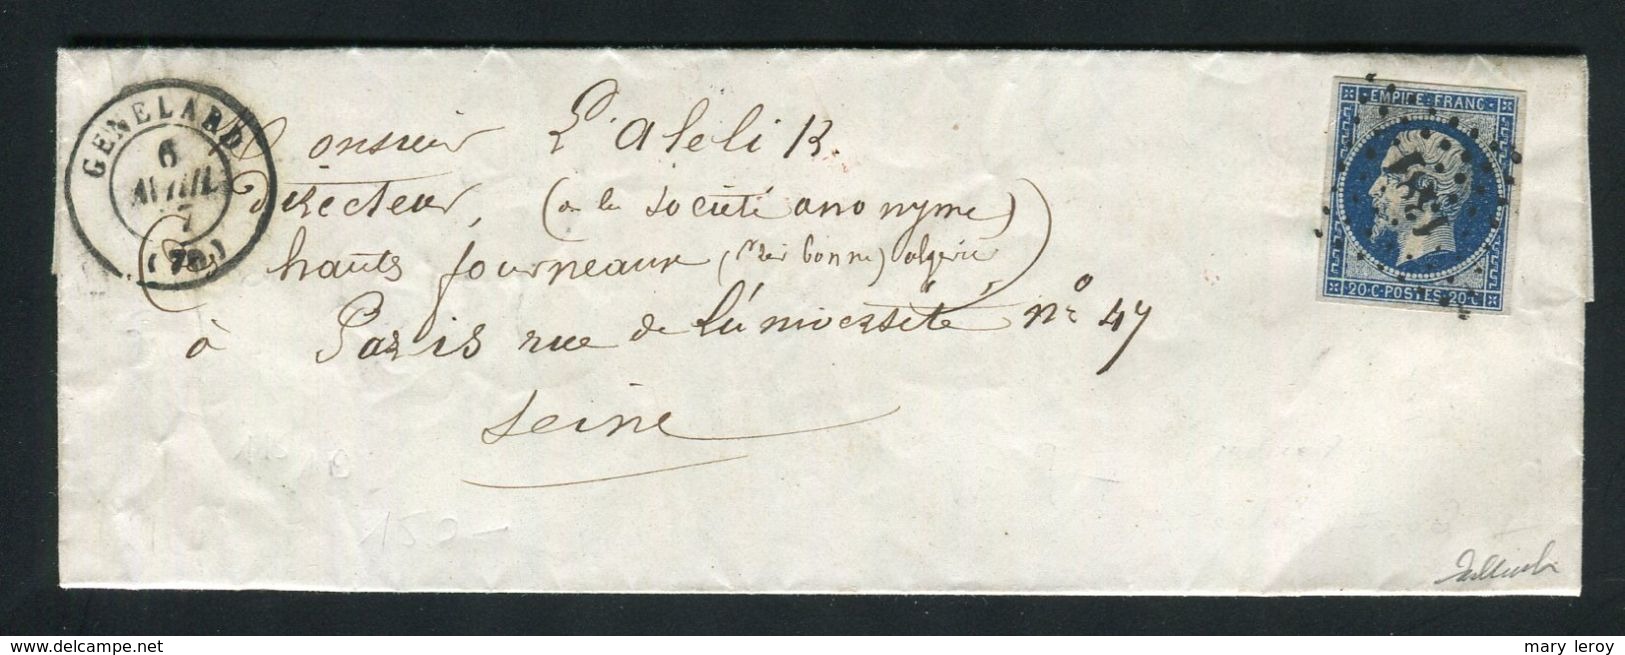 GENELARD
6
AVRIL
7
(70)
EMPIRE FRANC
1381
20·C·POSTES·20·C
Monsieur L'aleli R.
Directeur, (de la société anonyme)
hauts fourneaux, bonne) algérie
à Paris rue de l'université n° 47
Seine
150-
delcampe.net
mary leroy